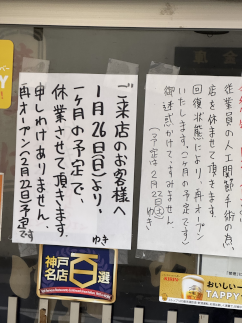 ご来店のお客様へ
1月26日(日)より、
一ヶ月の予定で、
休業させて頂きます。
申しわけありません。
再オープン(2月22日予定です
ゆき
従業員の人工関節手術の為、
店を休ませて頂きます。
回復状態により、再オープン
いたします。(一ヶ月の予定です)
御迷惑かけてすみません
(予定 2月22日(土))
ゆき
神戸
名店
百
選
おいしい
TAPPY